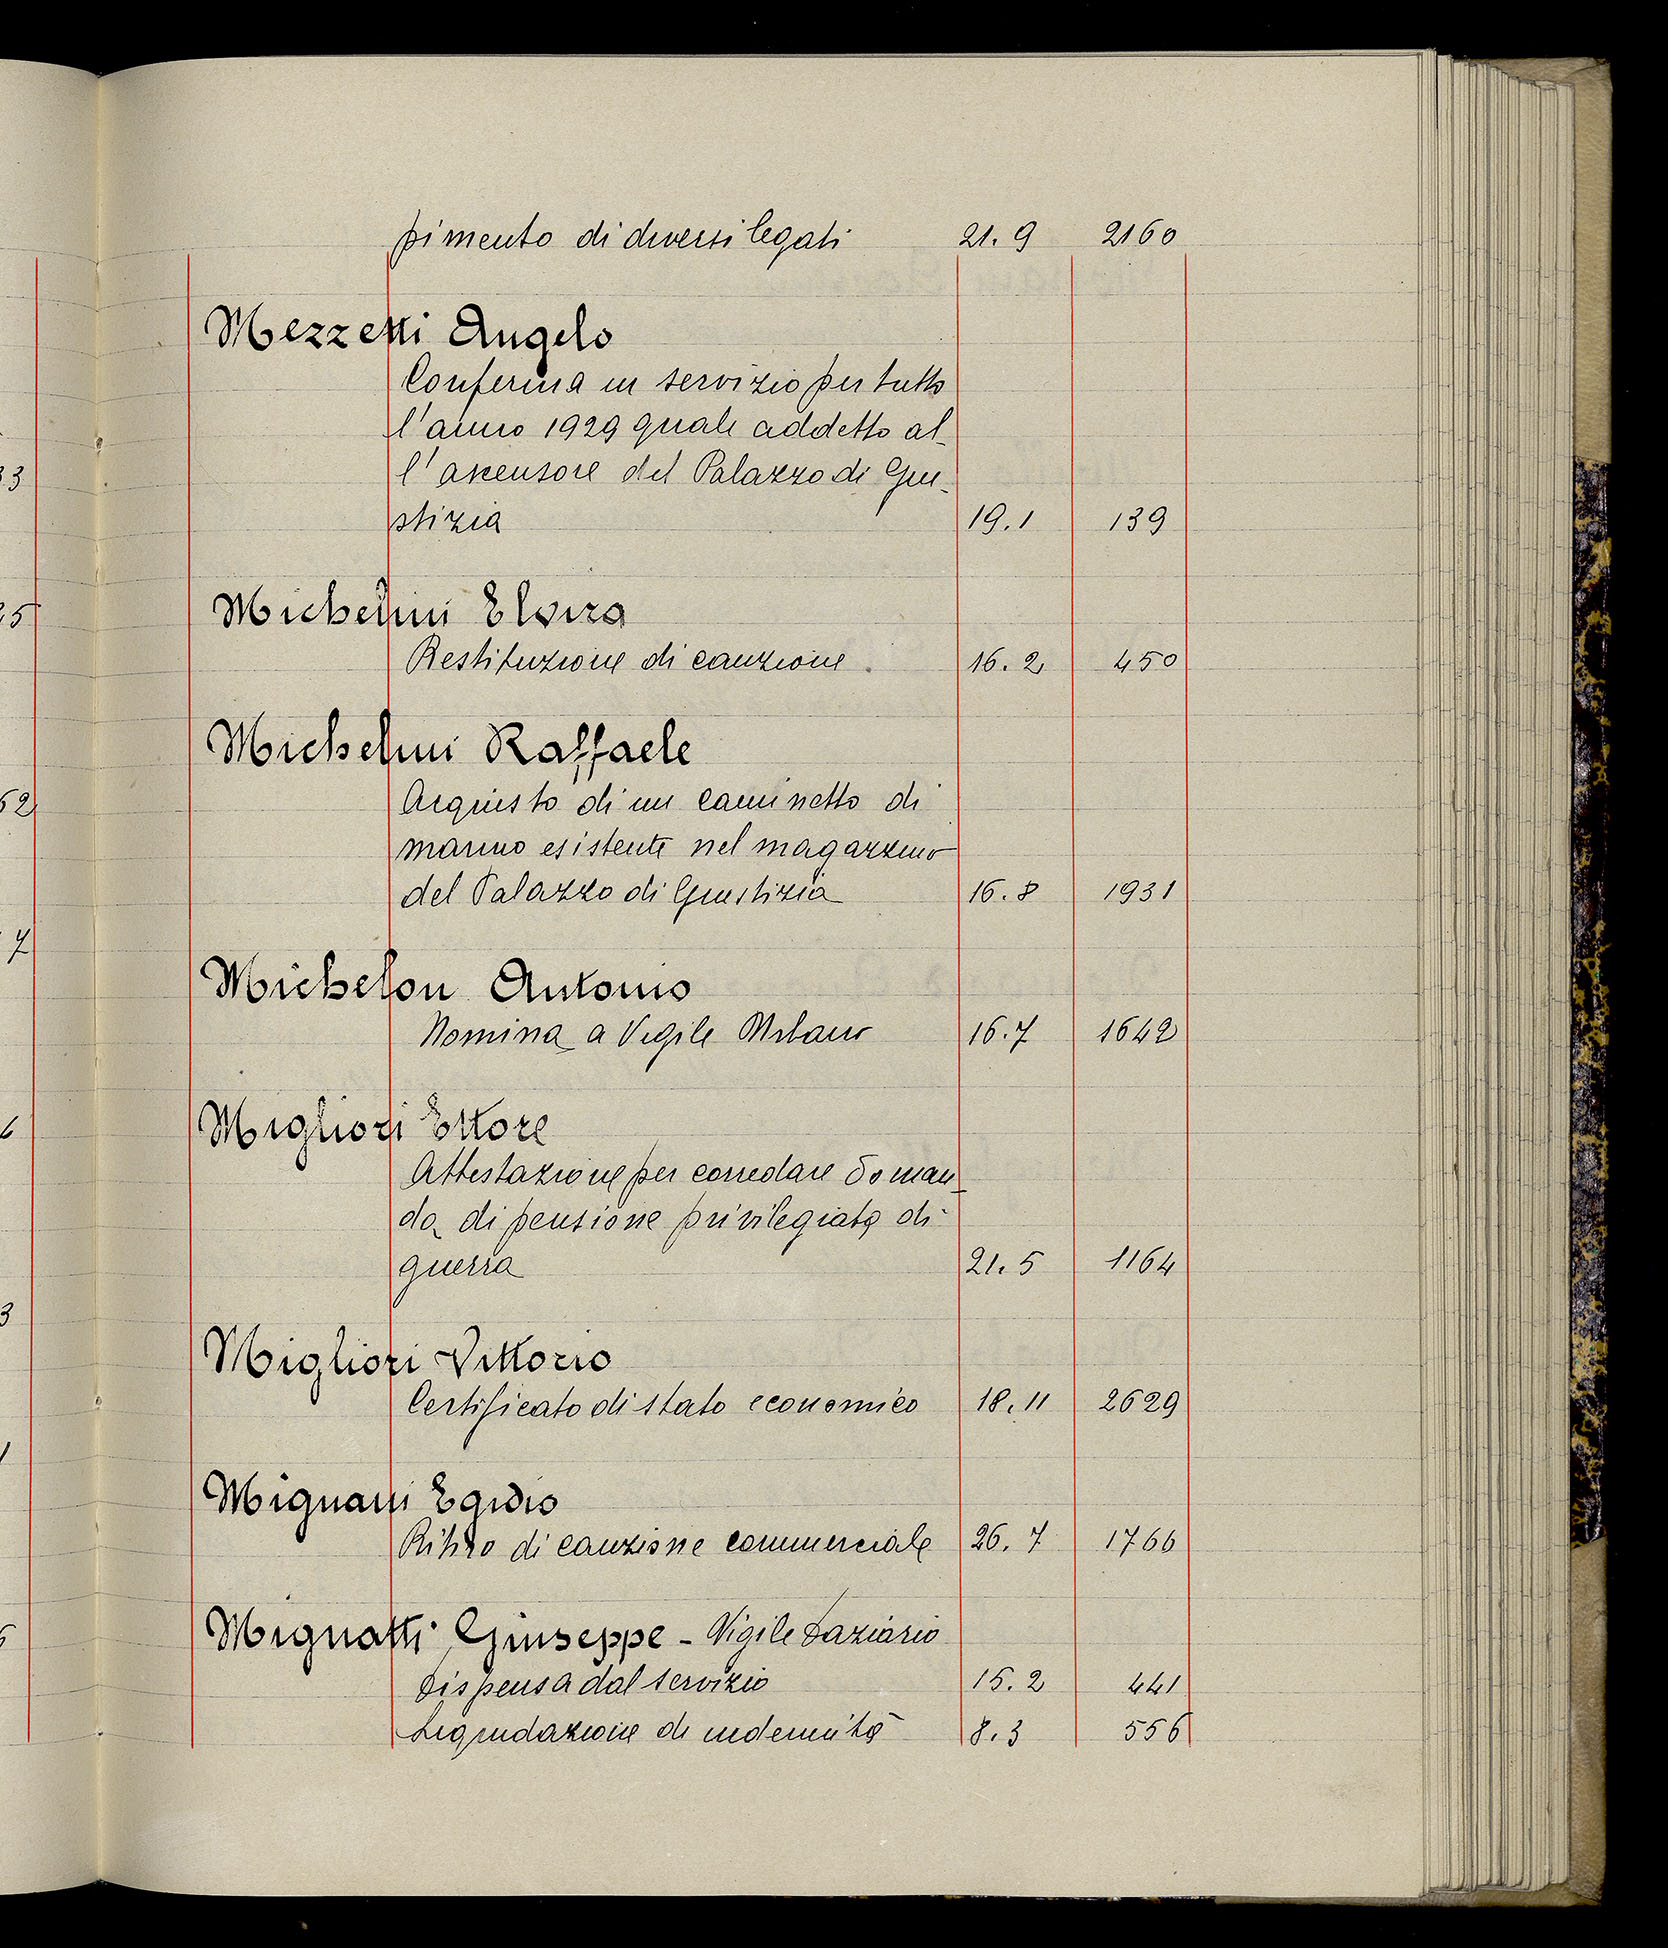 pimento di diversi legati 21.9 2160
Mezzetti Angelo
Conferma in servizio per tutto
l'anno 1929 quale addetto al-
l'ascensore del Palazzo di Giu-
stizia 19.1 139
Michelini Elvira
Restituzione di cauzione. 16.2 450
Michelini Raffaele
Acquisto di un caminetto di
marmo esistente nel magazzino
del Palazzo di Giustizia 16.8 1931
Michelon Antonio
Nomina a Vigile Urbano 16.7 1642
Migliori Ettore
Attestazione per corredare doman-
da di pensione privilegiata di
guerra 21.5 1164
Migliori Vittorio
Certificato di stato economico 18.11 2629
Mignani Egidio
Ritiro di cauzione commerciale 26.7 1766
Mignatti Giuseppe - Vigile daziario
Dispensa dal servizio 15.2 441
Liquidazione di indennità 8.3 556